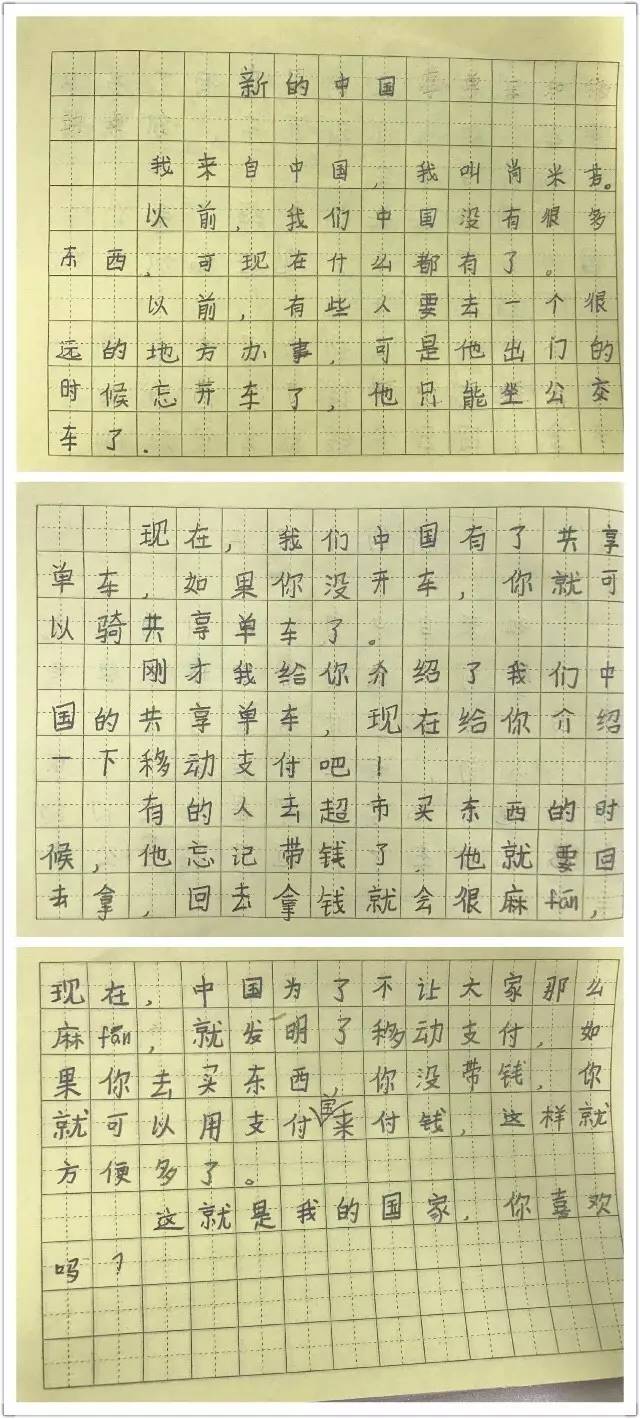 新的中国
我来自中国，我叫尚米
以前，我们中国没有很多
东西，可现在什么都有了。
以前，有些人要去一个很
远的地方办事，可是他出门的
时候忘开车了，他只能坐公交
车了.
现在，我们中国有了共享
单车，如果你没开车，你就可
以骑共享单车了。
刚才我给你介绍了我们中
国的共享单车，现在给你介绍
一下移动支付吧！
有的人去超市买东西的时
候，他忘记带钱了，他就要回
去拿，回去拿钱就会很麻fán，
现在，中国为了不让大家那么
麻fán，就发明了移动支付，如
果你去买东西，你没带钱，你
就可以用支付宝来付钱，这样就
方便多了。
这就是我的国家，你喜欢
吗？